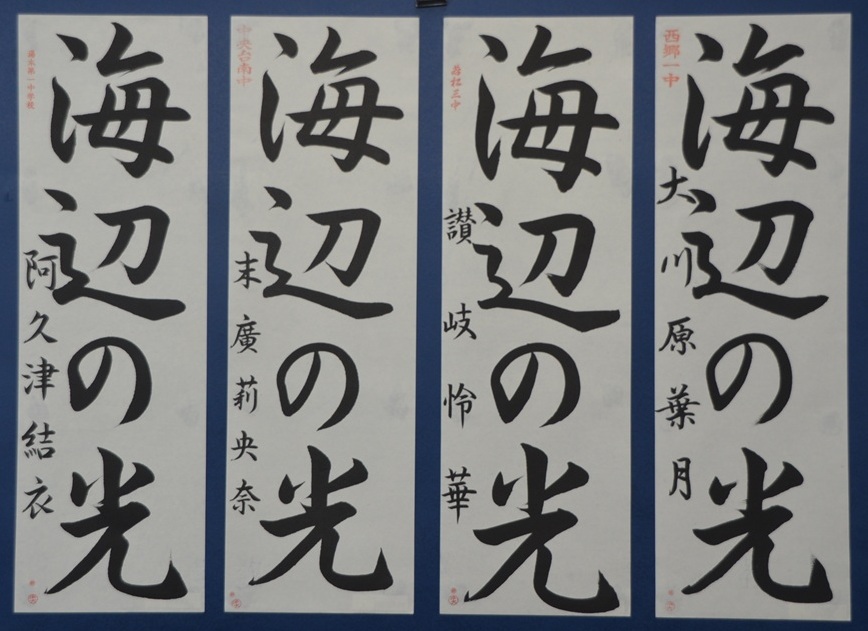 海辺の光
西郷一中
大川原葉月
海辺の光
若松三中
讃岐怜華
海辺の光
中央台南中
末廣莉央奈
海辺の光
阿久津結衣